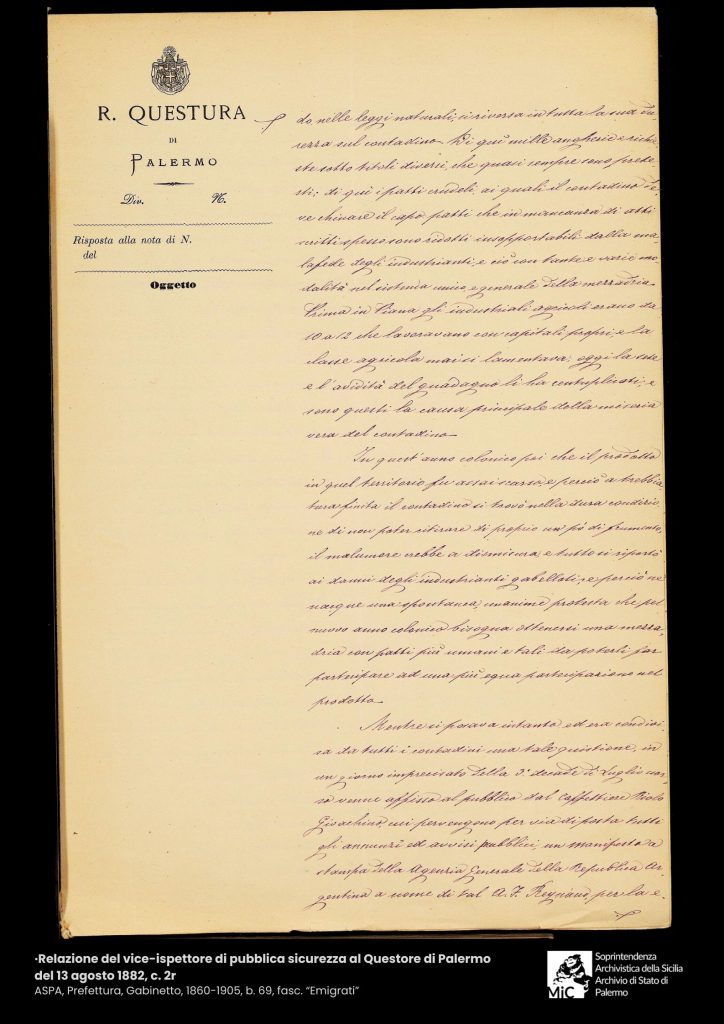 R. QUESTURA
DI
PALERMO
Div. N.
Risposta alla nota di N.
del
Oggetto
do nelle leggi naturali, si riversa in tutta la sua du-
rezza sul contadino. Di qui mille angherie e richie-
ste sotto titoli diversi, che quasi sempre sono prete-
sti; di qui i patti crudeli, ai quali il contadino de-
ve chinare il capo, patti che in mancanza di atti
scritti spesso sono ridotti insopportabili dalla ma-
lafede degli industrianti, e ciò con tante e varie mo-
dalità nel sistema unico, e generale della mezzadria.
Prima in Piana gli industriali agricoli erano da
10 a 12 che lavoravano con capitali propri, e la
classe agricola mai si lamentava; oggi la sete
e l'avidità del guadagno li ha centuplicati, e
sono questi la causa principale della miseria
vera del contadino.
In quest'anno colonico poi che il prodotto
in quel territorio fu assai scarso, e perciò a trebbia
tura finita il contadino si trovò nella dura condizio-
ne di non poter ritirare di proprio un pò di frumento,
il malumore crebbe a dismisura, e tutto si riportò
ai danni degli industrianti gabelloti, e perciò ne
nacque una spontanea, unanime protesta che pel
nuovo anno colonico bisogna ottenersi una mezza-
dria con patti più umani e tali da poterli far
partecipare ad una più equa partecipazione nel
prodotto.
Mentre si posava intanto, ed era condivi-
sa da tutti i contadini una tale quistione, in
un giorno imprecisato della 3ª decade di Luglio scor-
so venne affisso al pubblico dal Caffettiere
Gioachino, cui pervengono per via di posta tutti
gli annunzi ed avvisi pubblici, un manifesto a
stampa della Agenzia Generale della Repubblica Ar-
gentina a nome di tal A. F. Reynaud, per la e-
·Relazione del vice-ispettore di pubblica sicurezza al Questore di Palermo
del 13 agosto 1882, c. 2r
ASPA, Prefettura, Gabinetto, 1860-1905, b. 69, fasc. “Emigrati”
MiC
Soprintendenza
Archivistica della Sicilia
Archivio di Stato di
Palermo